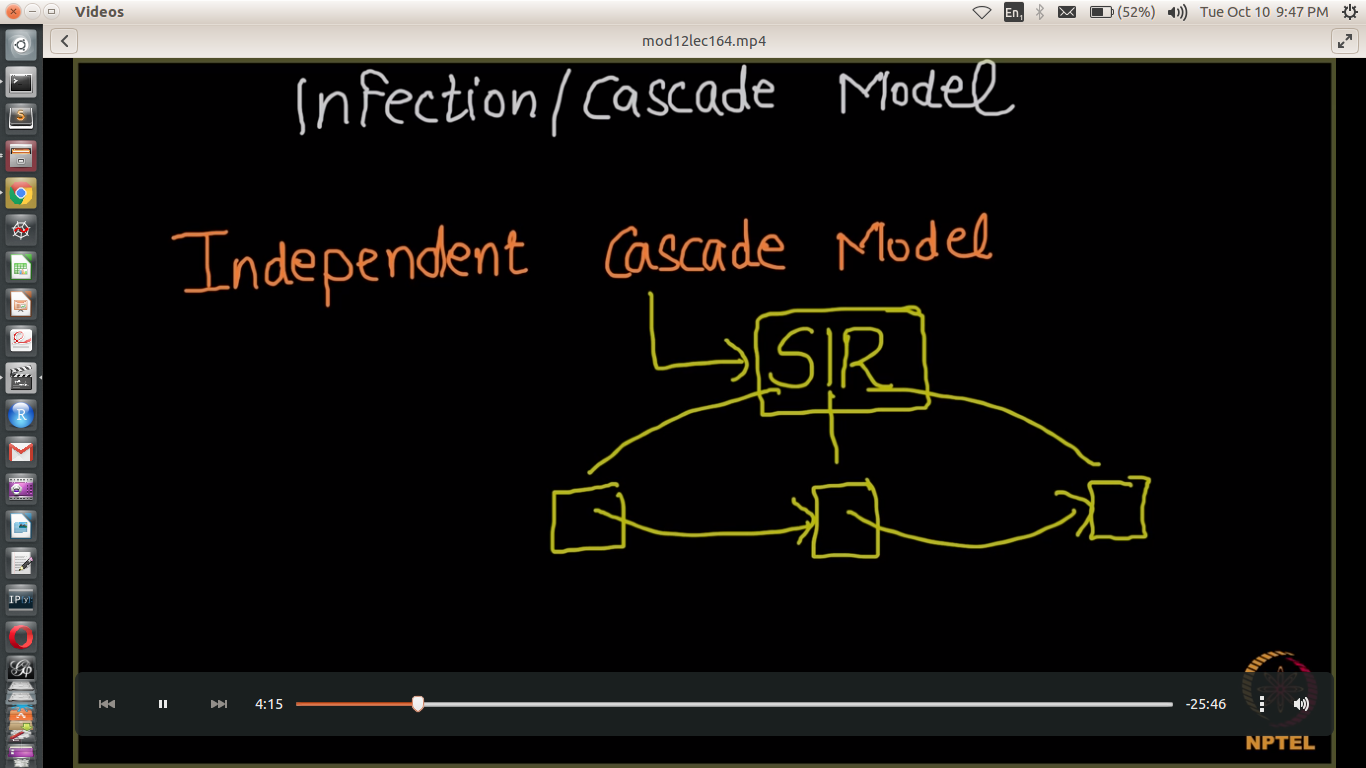 Videos
En1
(52%)
Tue Oct 10 9:47 PM
mod12lec164.mp4
Infection/Cascade Model
Independent Cascade Model
SIR
4:15
-25:46
NPTEL